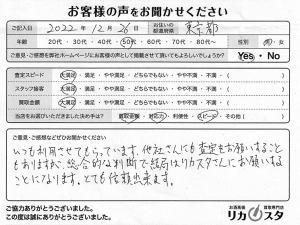 お客様の声をお聞かせください
ご記入日 2022年 12月 26日 お住いの都道府県 東京都
年齢 20代・30代・40代・50代・60代・70代・80代〜 性別 男・女
ご意見・ご感想を弊社ホームページにお客様の声として掲載させて頂いてもよろしいでしょうか? Yes・No
査定スピード 大満足・満足・やや満足・どちらでもない・やや不満・不満・( )
スタッフ接客 大満足・満足・やや満足・どちらでもない・やや不満・不満・( )
買取金額 大満足・満足・やや満足・どちらでもない・やや不満・不満・( )
当店をお選びいただきました決め手は? 買取金額・対応力・利便性・スピード・その他( )
ご意見・ご感想などぜひお聞かせください。
いつも利用させてもらっています。他社さんにも査定をお願いすることも
ありますが、総合的な判断で結局はリカスタさんにお願いする
ことになります。とても信頼出来ます。
ご協力ありがとうございました。
この度は誠にありがとうございました。
お酒高価買取専門店
リカスタ